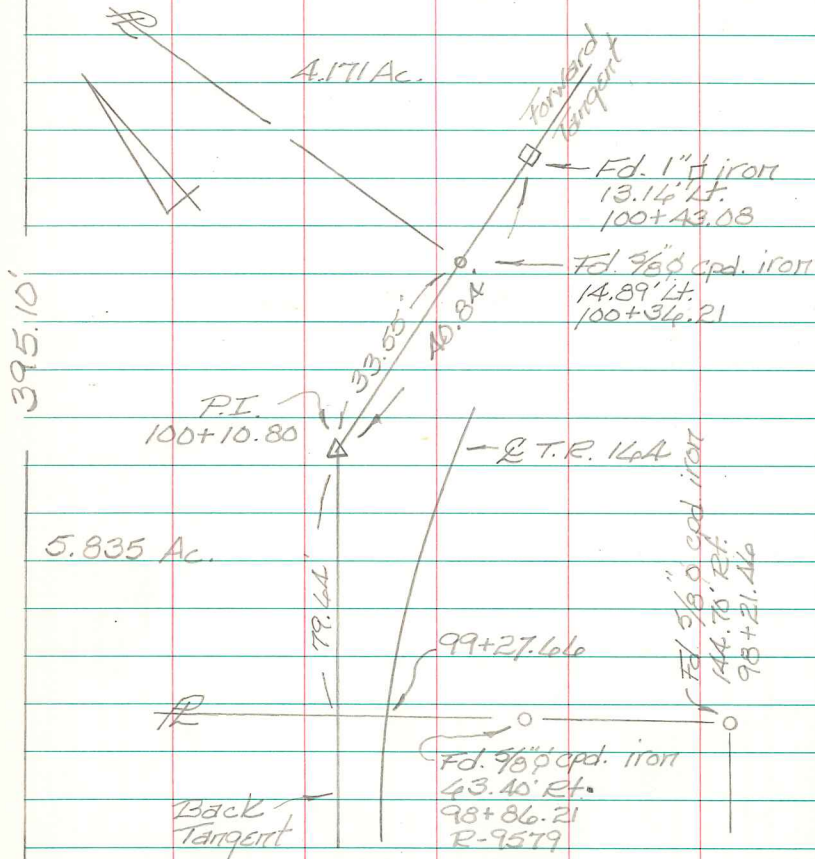 PL
4.171 Ac.
Forward
Tangent
Fd. 1"⌀ iron
13.16' Lt.
100+43.08
Fd. 5/8"⌀ cpd. iron
14.89' Lt.
100+36.21
395.10'
33.55'
40.84'
P.I.
100+10.80
℄ T.R. 164
5.835 Ac.
79.64'
Fd. 5/8"⌀ cpd iron
144.70' Rt.
98+21.46
99+27.66
PL
Fd. 5/8"⌀ cpd. iron
63.40' Rt.
98+86.21
R-9579
Back
Tangent